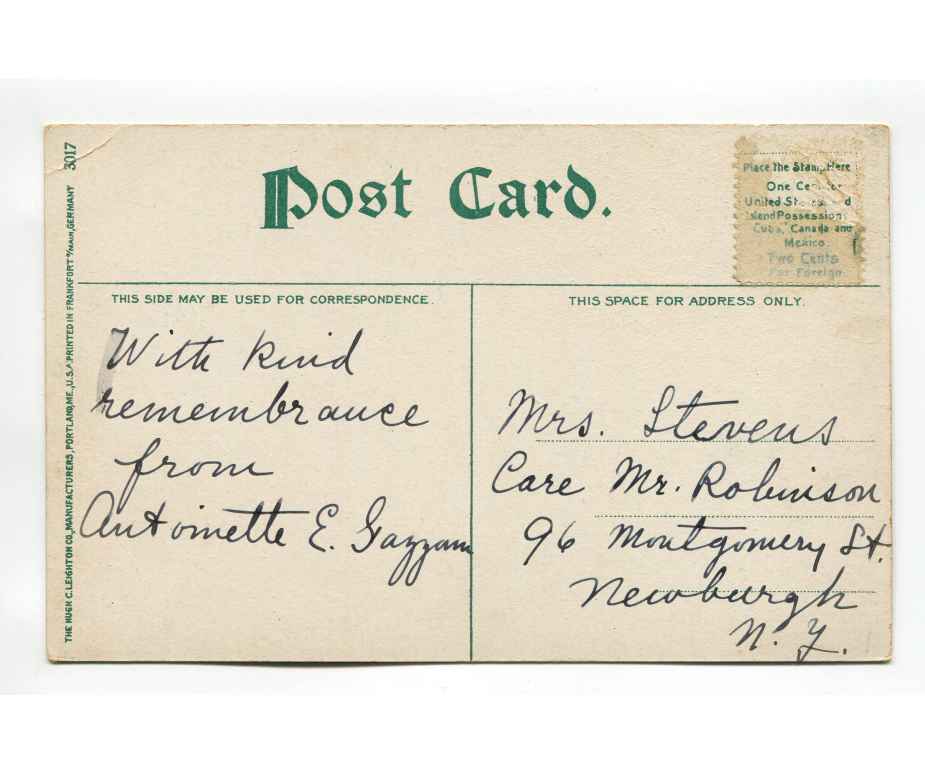 3017
Post Card.
Place the Stamp Here
One Cent for
United States and
Island Possessions
Cuba, Canada and
Mexico.
Two Cents
For Foreign
THIS SIDE MAY BE USED FOR CORRESPONDENCE.
With kind
remembrance
from
Antoinette E. Gazzam
THIS SPACE FOR ADDRESS ONLY.
Mrs. Stevens
Care Mr. Robinson
96 Montgomery St.
Newburgh
N. Y.
THE HUGH C. LEIGHTON CO., MANUFACTURERS, PORTLAND, ME., U.S.A. PRINTED IN FRANKFORT A/MAIN, GERMANY